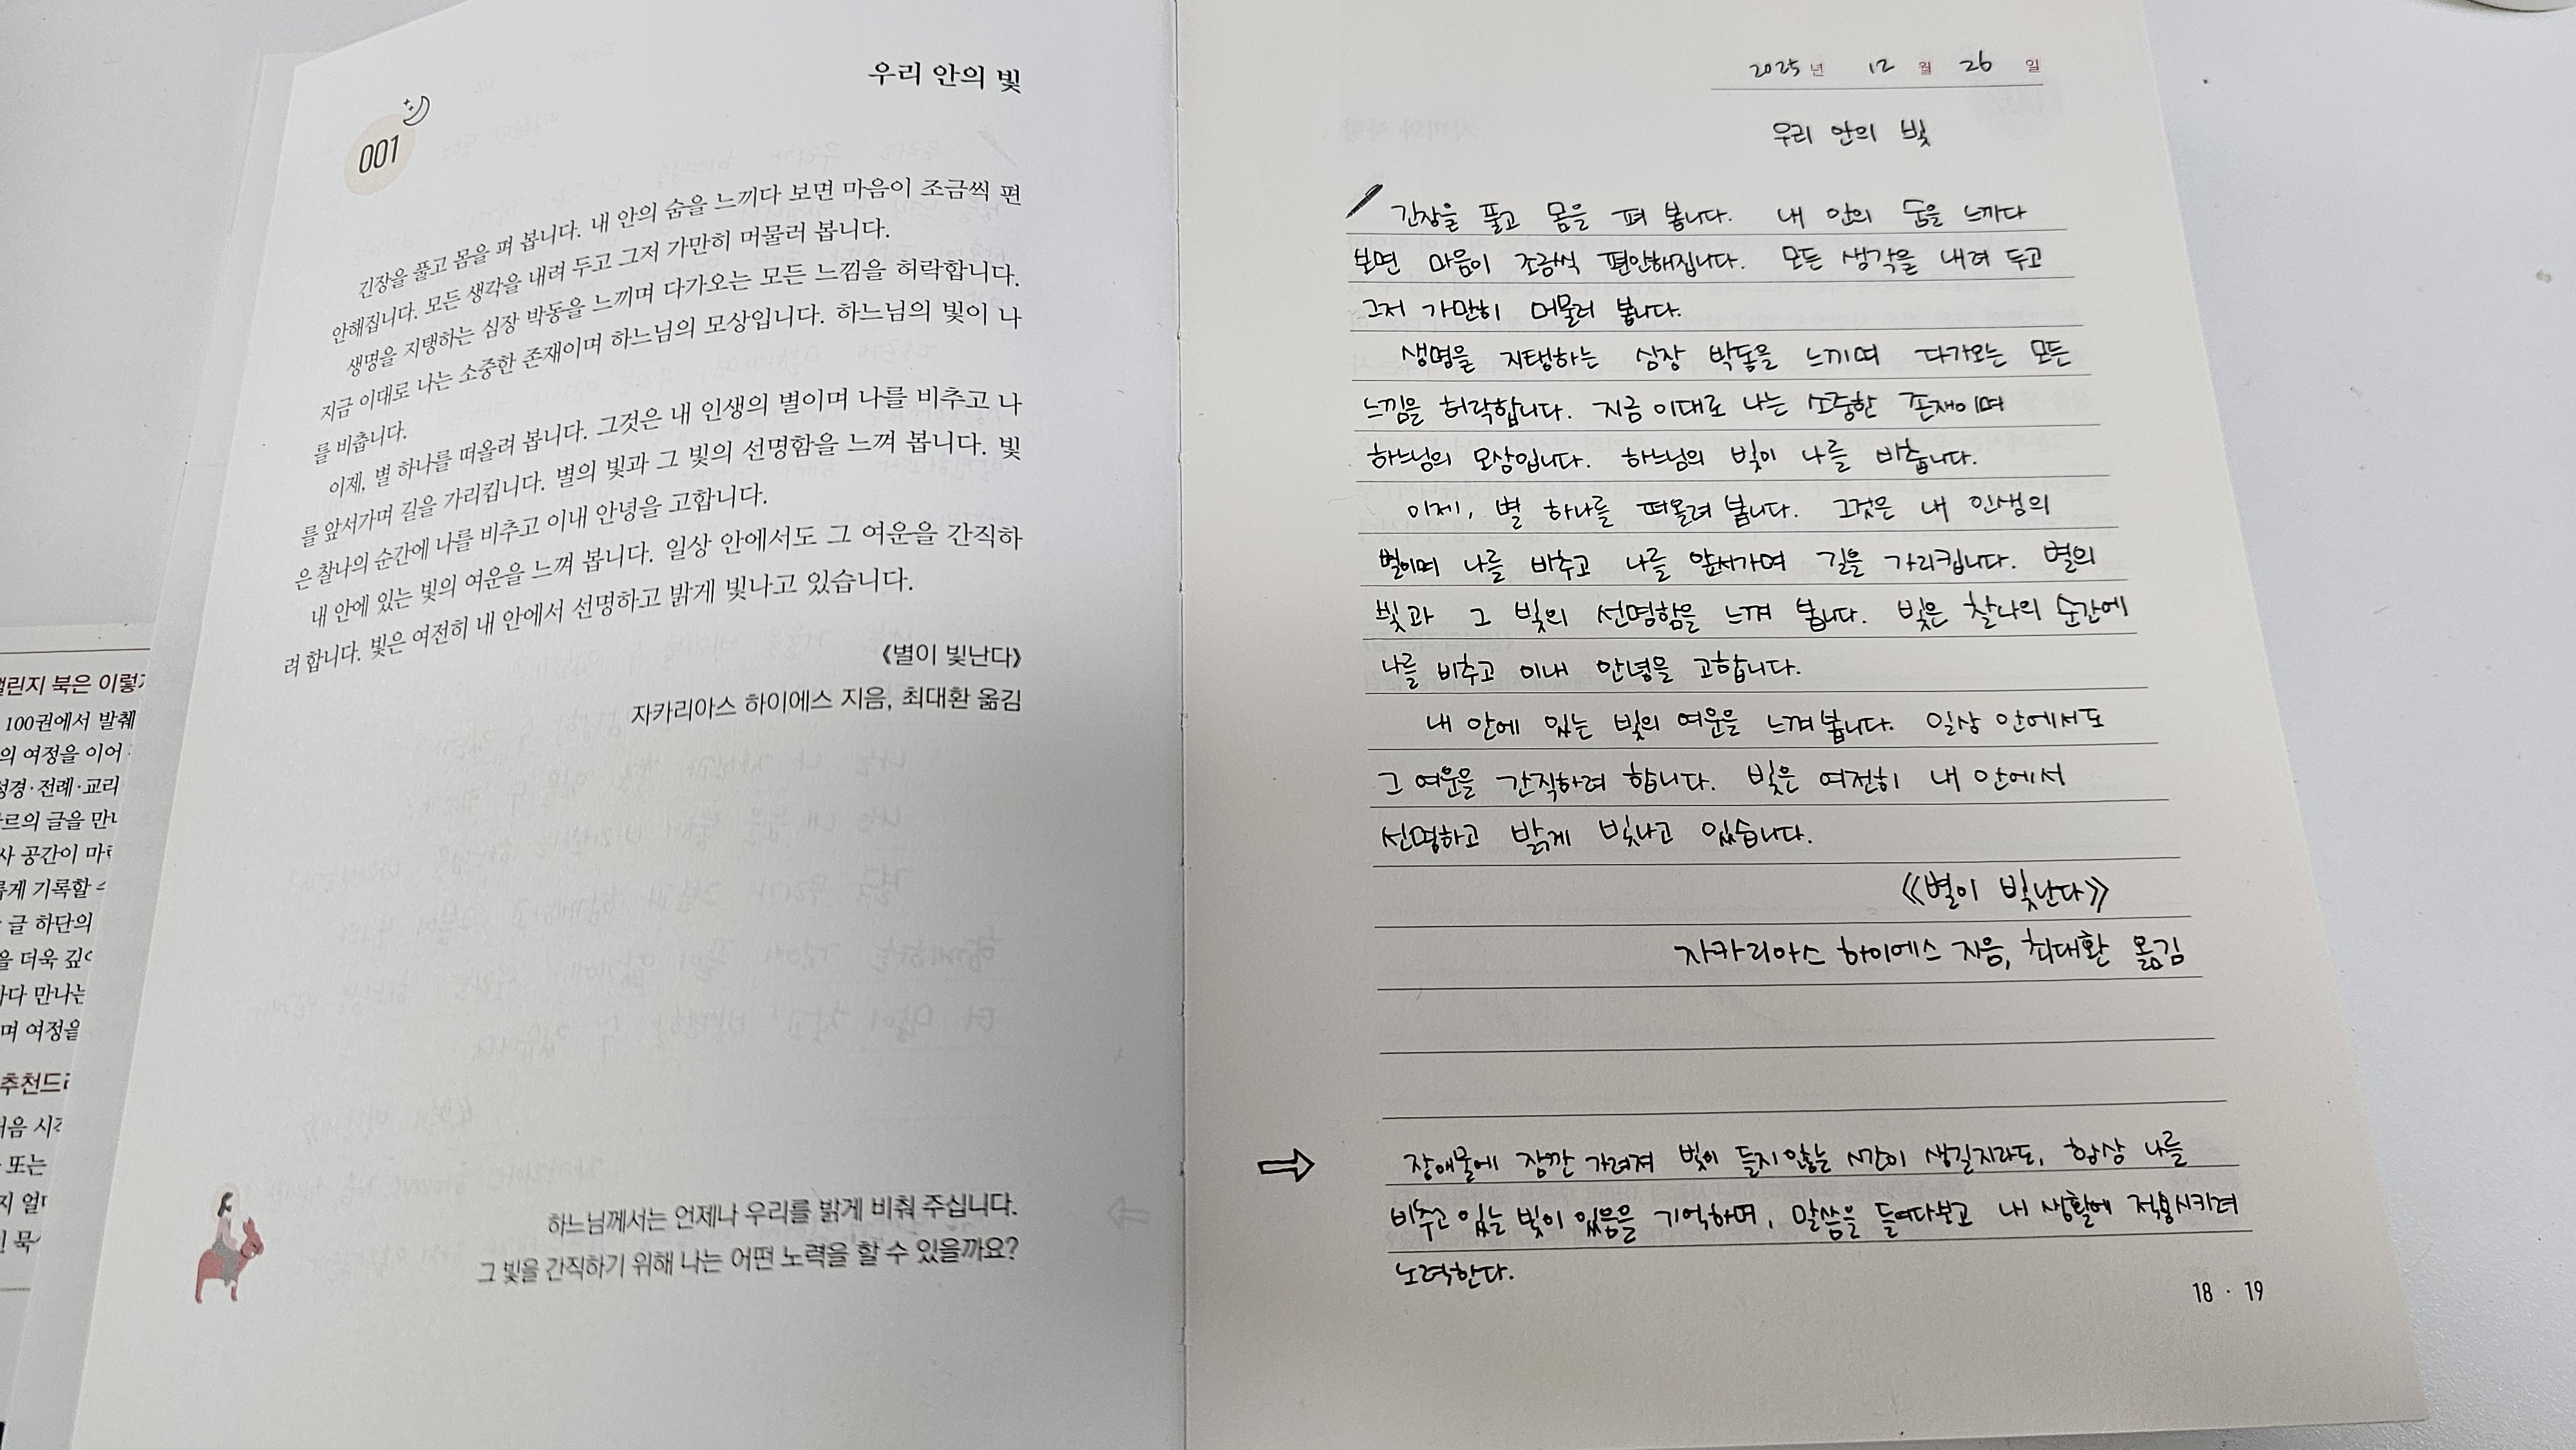 우리 안의 빛
001
긴장을 풀고 몸을 펴 봅니다. 내 안의 숨을 느끼다 보면 마음이 조금씩 편
안해집니다. 모든 생각을 내려 두고 그저 가만히 머물러 봅니다.
생명을 지탱하는 심장 박동을 느끼며 다가오는 모든 느낌을 허락합니다.
지금 이대로 나는 소중한 존재이며 하느님의 모상입니다. 하느님의 빛이 나
를 비춥니다.
이제, 별 하나를 떠올려 봅니다. 그것은 내 인생의 별이며 나를 비추고 나
를 앞서가며 길을 가리킵니다. 별의 빛과 그 빛의 선명함을 느껴 봅니다. 빛
은 찰나의 순간에 나를 비추고 이내 안녕을 고합니다.
내 안에 있는 빛의 여운을 느껴 봅니다. 일상 안에서도 그 여운을 간직하
려 합니다. 빛은 여전히 내 안에서 선명하고 밝게 빛나고 있습니다.
《별이 빛난다》
자카리아스 하이에스 지음, 최대환 옮김
하느님께서는 언제나 우리를 밝게 비춰 주십니다.
그 빛을 간직하기 위해 나는 어떤 노력을 할 수 있을까요?
북은
100권에서 발췌
의 여정을 이어
성경·전례·교리
르의 글을 만나
공간이
기록할
글 하단의
을 더욱
다 만나는
며 여정을
또는
2025년 12월 26일
우리 안의 빛
긴장을 풀고 몸을 펴 봅니다. 내 안의 숨을 느끼다
보면 마음이 조금씩 편안해집니다. 모든 생각을 내려 두고
그저 가만히 머물러 봅니다.
생명을 지탱하는 심장 박동을 느끼며 다가오는 모든
느낌을 허락합니다. 지금 이대로 나는 소중한 존재이며
하느님의 모상입니다. 하느님의 빛이 나를 비춥니다.
이제, 별 하나를 떠올려 봅니다. 그것은 내 인생의
별이며 나를 비추고 나를 앞서가며 길을 가리킵니다. 별의
빛과 그 빛의 선명함을 느껴 봅니다. 빛은 찰나의 순간에
나를 비추고 이내 안녕을 고합니다.
내 안에 있는 빛의 여운을 느껴 봅니다. 일상 안에서도
그 여운을 간직하려 합니다. 빛은 여전히 내 안에서
선명하고 밝게 빛나고 있습니다.
《별이 빛난다》
자카리아스 하이에스 지음, 최대환 옮김
장애물에 잠깐 가려져 빛이 들지 않는 시간이 생길지라도, 항상 나를
비추고 있는 빛이 있음을 기억하며, 말씀을 들여다보고 내 생활에 적용시키려
노력한다.
18 · 19